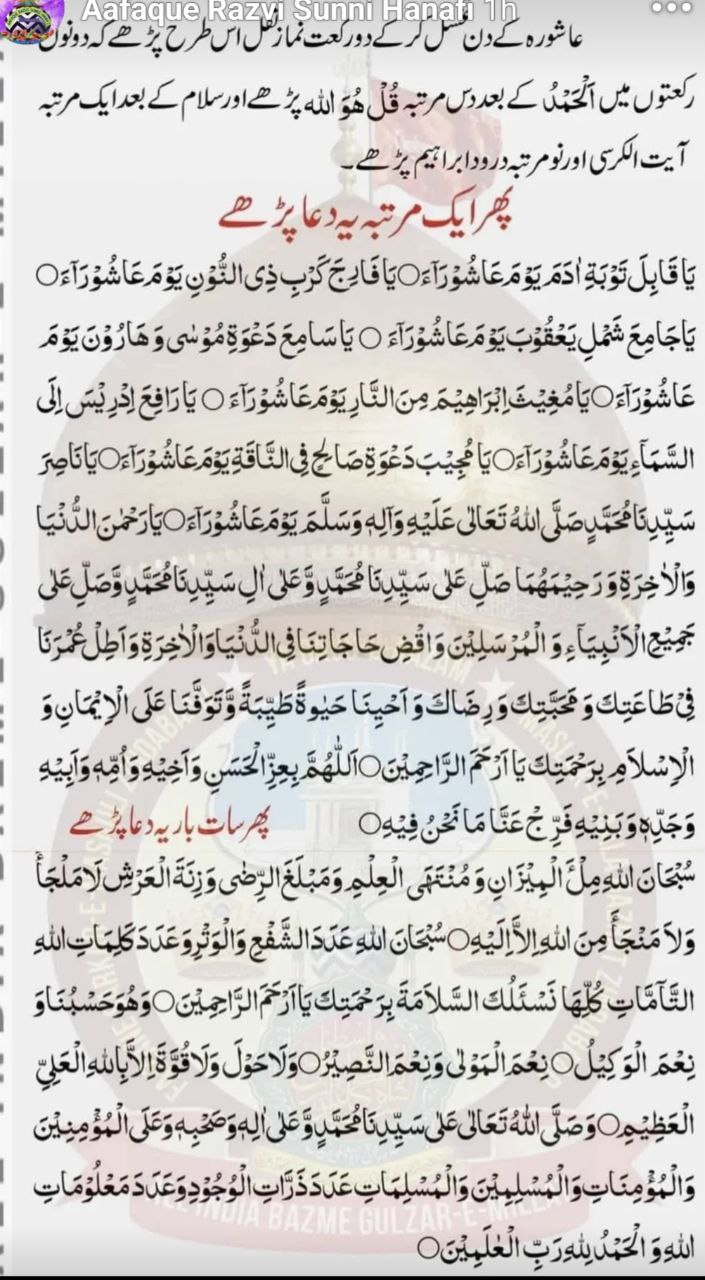 Aafaque Razvi Sunni Hanafi 1h
عاشورہ کے دن غسل کر کے دو رکعت نماز نفل اس طرح پڑھے کہ دونوں
رکعتوں میں اَلْحَمْدُ کے بعد دس مرتبہ قُلْ هُوَ الله پڑھے اور سلام کے بعد ایک مرتبہ
آیت الکرسی اور نو مرتبہ درود ابراہیم پڑھے۔
پھر ایک مرتبہ یہ دعا پڑھے
يَا قَابِلَ تَوْبَةِ اٰدَمَ يَوْمَ عَاشُوْرَآءَ○يَا فَارِجَ كَرْبِ ذِى النُّوْنِ يَوْمَ عَاشُوْرَآءَ○
يَا جَامِعَ شَمْلِ يَعْقُوْبَ يَوْمَ عَاشُوْرَآءَ ○ يَا سَامِعَ دَعْوَةِ مُوْسٰى وَ هَارُوْنَ يَوْمَ
عَاشُوْرَآءَ○يَا مُغِيْثَ اِبْرَاهِيْمَ مِنَ النَّارِ يَوْمَ عَاشُوْرَآءَ ○ يَا رَافِعَ اِدْرِيْسَ اِلَى
السَّمَآءِ يَوْمَ عَاشُوْرَآءَ○يَا مُجِيْبَ دَعْوَةِ صَالِحٍ فِى النَّاقَةِ يَوْمَ عَاشُوْرَآءَ○يَا نَاصِرَ
سَيِّدِنَا مُحَمَّدٍ صَلَّى اللهُ تَعَالٰى عَلَيْهِ وَآلِهٖ وَسَلَّمَ يَوْمَ عَاشُوْرَآءَ○يَا رَحْمٰنَ الدُّنْيَا
وَالْاٰخِرَةِ وَرَحِيْمَهُمَا صَلِّ عَلٰى سَيِّدِنَا مُحَمَّدٍ وَّعَلٰى اٰلِ سَيِّدِنَا مُحَمَّدٍ وَّصَلِّ عَلٰى
جَمِيْعِ الْاَنْبِيَآءِ وَ الْمُرْسَلِيْنَ وَاقْضِ حَاجَاتِنَا فِى الدُّنْيَا وَالْاٰخِرَةِ وَاَطِلْ عُمْرَنَا
فِىْ طَاعَتِكَ وَ مَحَبَّتِكَ وَ رِضَاكَ وَ اَحْيِنَا حَيٰوةً طَيِّبَةً وَّتَوَفَّنَا عَلَى الْاِيْمَانِ وَ
الْاِسْلَامِ بِرَحْمَتِكَ يَا اَرْحَمَ الرَّاحِمِيْنَ○اَللّٰهُمَّ بِعِزِّ الْحَسَنِ وَاَخِيْهِ وَاُمِّهٖ وَاَبِيْهِ
وَجَدِّهٖ وَبَنِيْهِ فَرِّجْ عَنَّا مَا نَحْنُ فِيْهِ○ پھر سات بار یہ دعا پڑھے
سُبْحَانَ اللهِ مِلْءَ الْمِيْزَانِ وَ مُنْتَهَى الْعِلْمِ وَمَبْلَغَ الرِّضٰى وَزِنَةَ الْعَرْشِ لَا مَلْجَأَ
وَلَا مَنْجَأَ مِنَ اللهِ اِلَّا اِلَيْهِ○سُبْحَانَ اللهِ عَدَدَ الشَّفْعِ وَالْوَتْرِ وَعَدَدَ كَلِمَاتِ اللهِ
التَّآمَّاتِ كُلِّهَا نَسْئَلُكَ السَّلَامَةَ بِرَحْمَتِكَ يَا اَرْحَمَ الرَّاحِمِيْنَ○وَهُوَ حَسْبُنَا وَ
نِعْمَ الْوَكِيْلُ○نِعْمَ الْمَوْلٰى وَنِعْمَ النَّصِيْرُ○وَلَا حَوْلَ وَلَا قُوَّةَ اِلَّا بِاللهِ الْعَلِىِّ
الْعَظِيْمِ○وَصَلَّى اللهُ تَعَالٰى عَلٰى سَيِّدِنَا مُحَمَّدٍ وَّعَلٰى اٰلِهٖ وَصَحْبِهٖ وَعَلَى الْمُؤْمِنِيْنَ
وَالْمُؤْمِنَاتِ وَالْمُسْلِمِيْنَ وَالْمُسْلِمَاتِ عَدَدَ ذَرَّاتِ الْوُجُوْدِ وَعَدَدَ مَعْلُوْمَاتِ
اللهِ وَ الْحَمْدُ لِلّٰهِ رَبِّ الْعٰلَمِيْنَ○
INDIA BAZME GULZAR-E-MILLAT